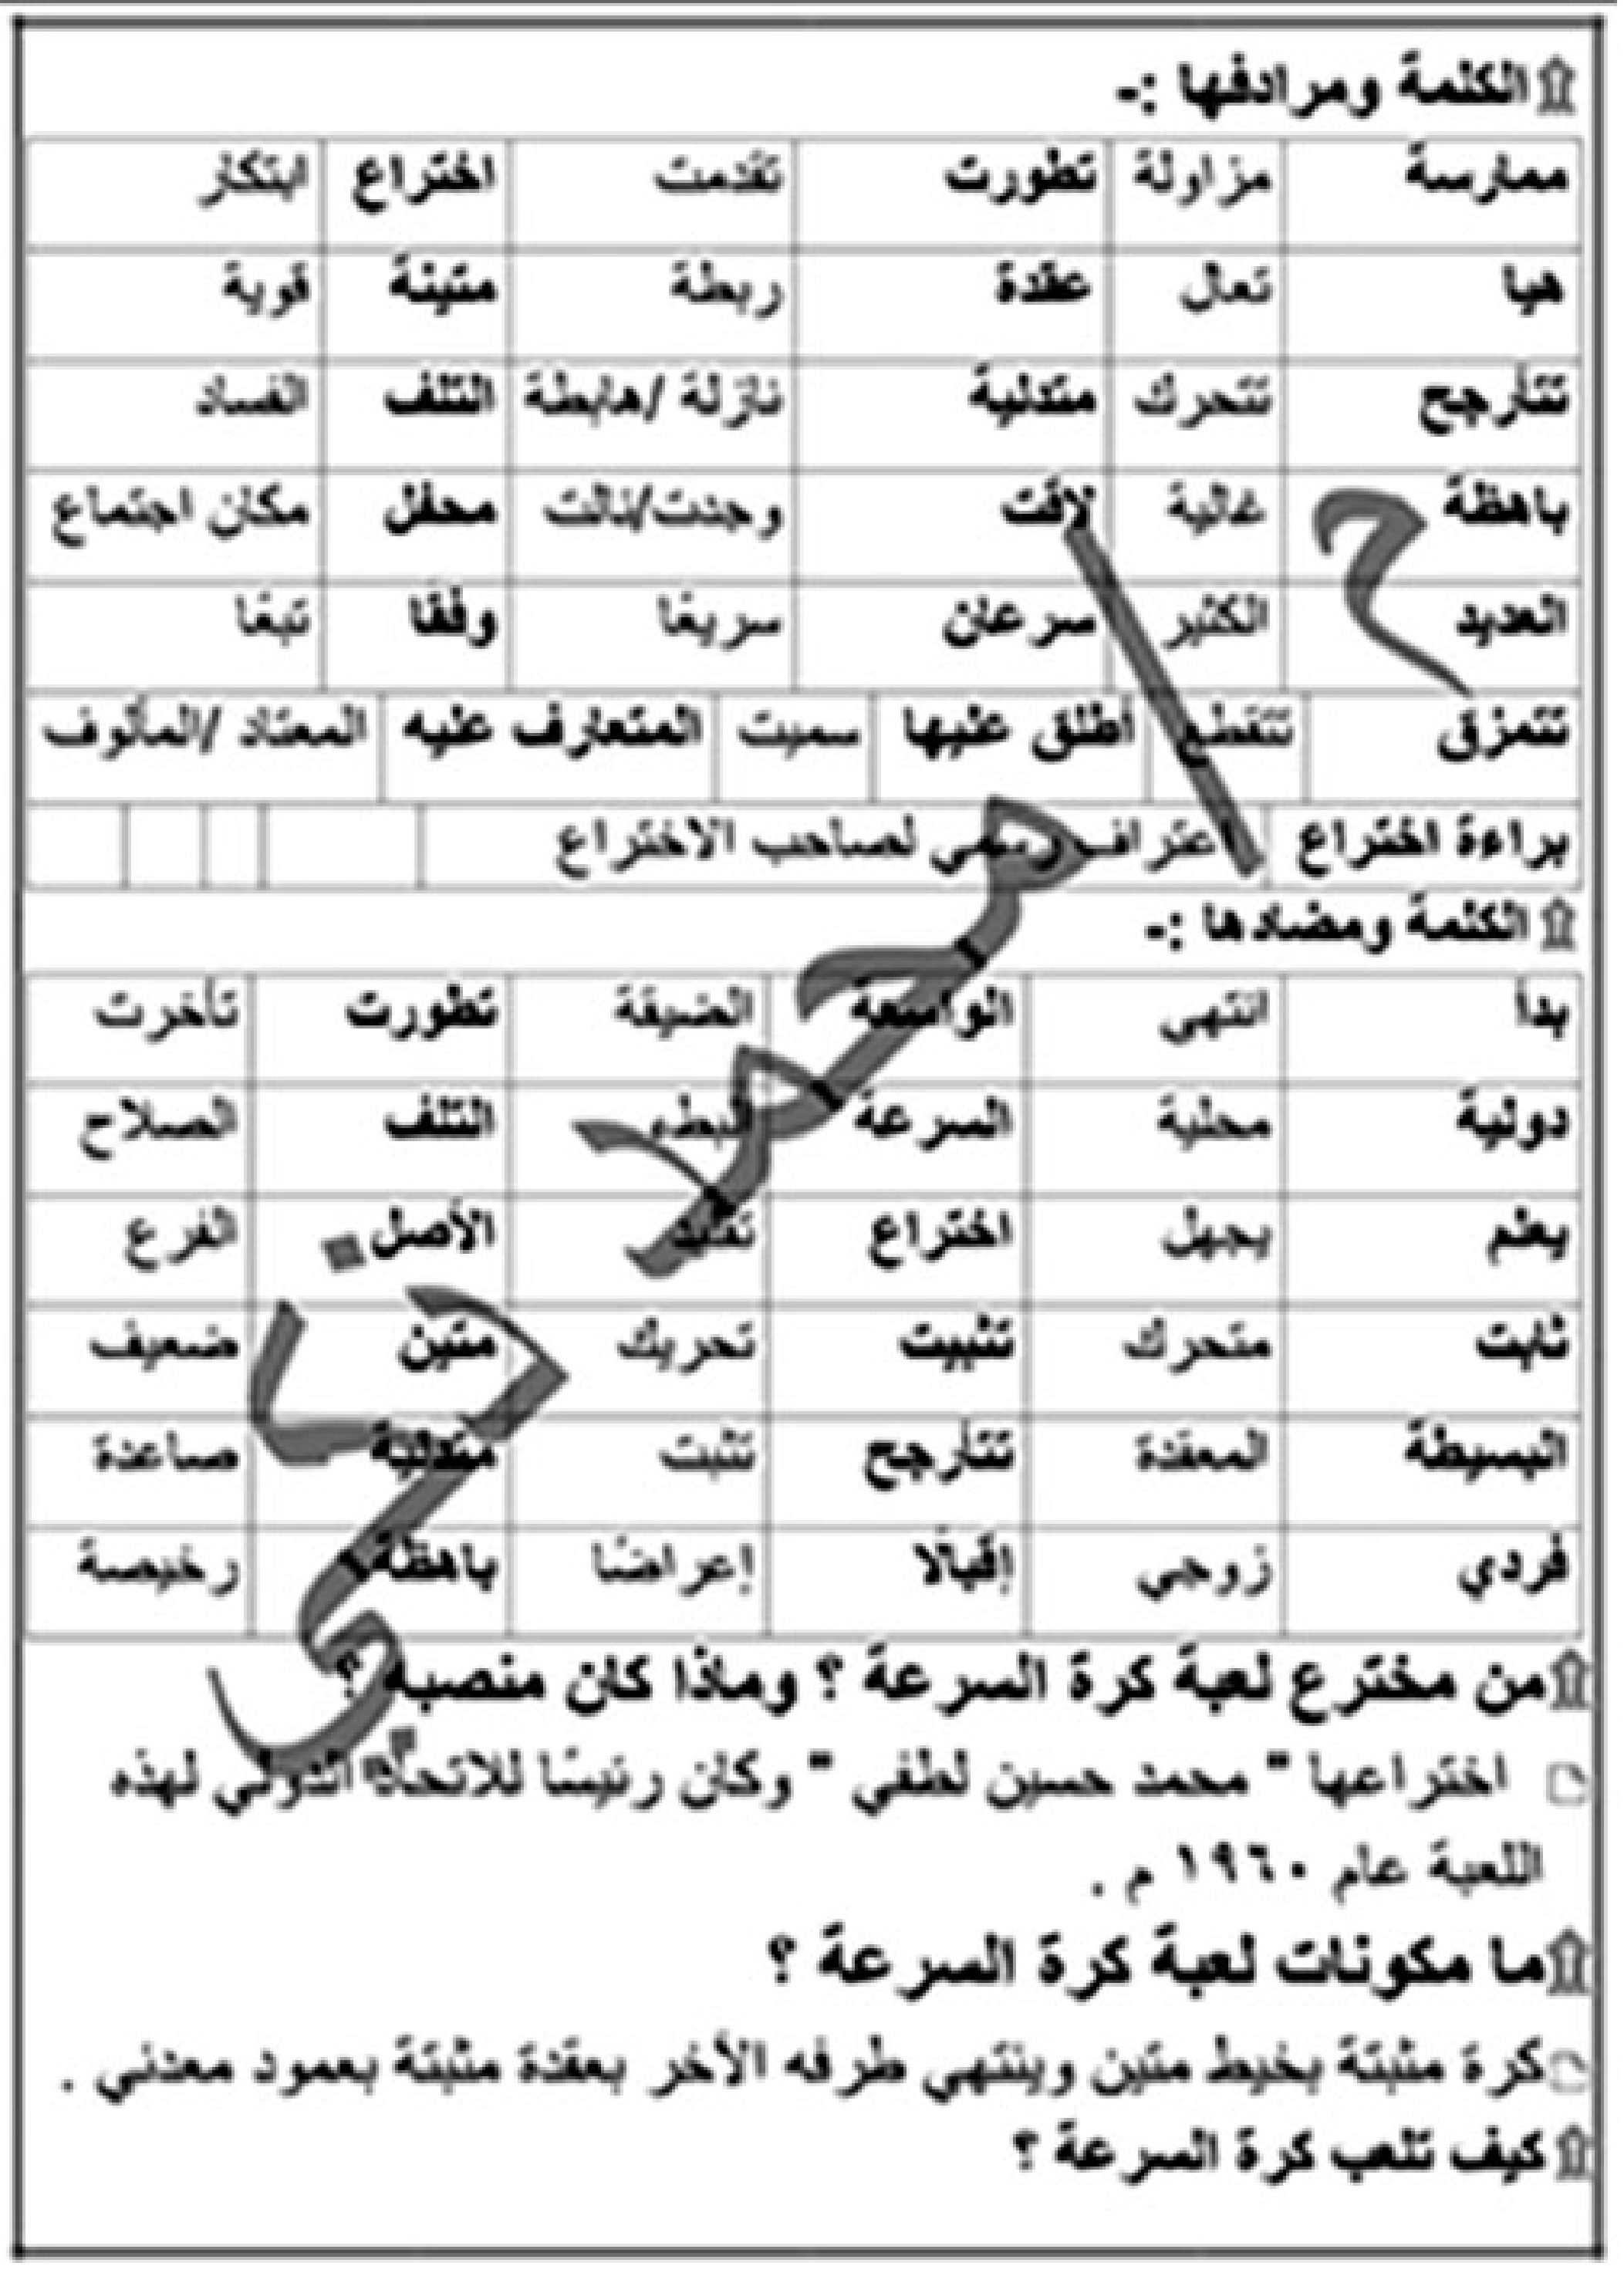 الكلمة ومرادفها :-
ممارسة مزاولة تطورت تقدمت اختراع ابتكار
هيا تعال عقدة ربطة متينة قوية
تتأرجح تتحرك متدلية نازلة /هابطة التلف الفساد
باهظة غالية لاقت وجدت/نالت محفل مكان اجتماع
العديد الكثير سرعان سريعًا وفقًا تبعًا
تتمزق تتقطع أطلق عليها سميت المتعارف عليه المعتاد /المألوف
براءة اختراع اعتراف رسمي لصاحب الاختراع
الكلمة ومضادها :-
بدأ انتهي الواسعة الضيقة تطورت تأخرت
دولية محلية السرعة البطء التلف الصلاح
يعلم يجهل اختراع تقليد الأصل الفرع
ثابت متحرك تثبيت تحريك متين ضعيف
البسيطة المعقدة تتأرجح تثبت متدلية صاعدة
فردي زوجي إقبالًا إعراضًا باهظة رخيصة
من مخترع لعبة كرة السرعة ؟ وماذا كان منصبه ؟
اختراعها " محمد حسين لطفي " وكان رئيسًا للاتحاد الدولي لهذه
اللعبة عام ١٩٦٠ م .
ما مكونات لعبة كرة السرعة ؟
كرة مثبتة بخيط متين وينتهي طرفه الأخر بعقدة مثبتة بعمود معدني .
كيف تلعب كرة السرعة ؟